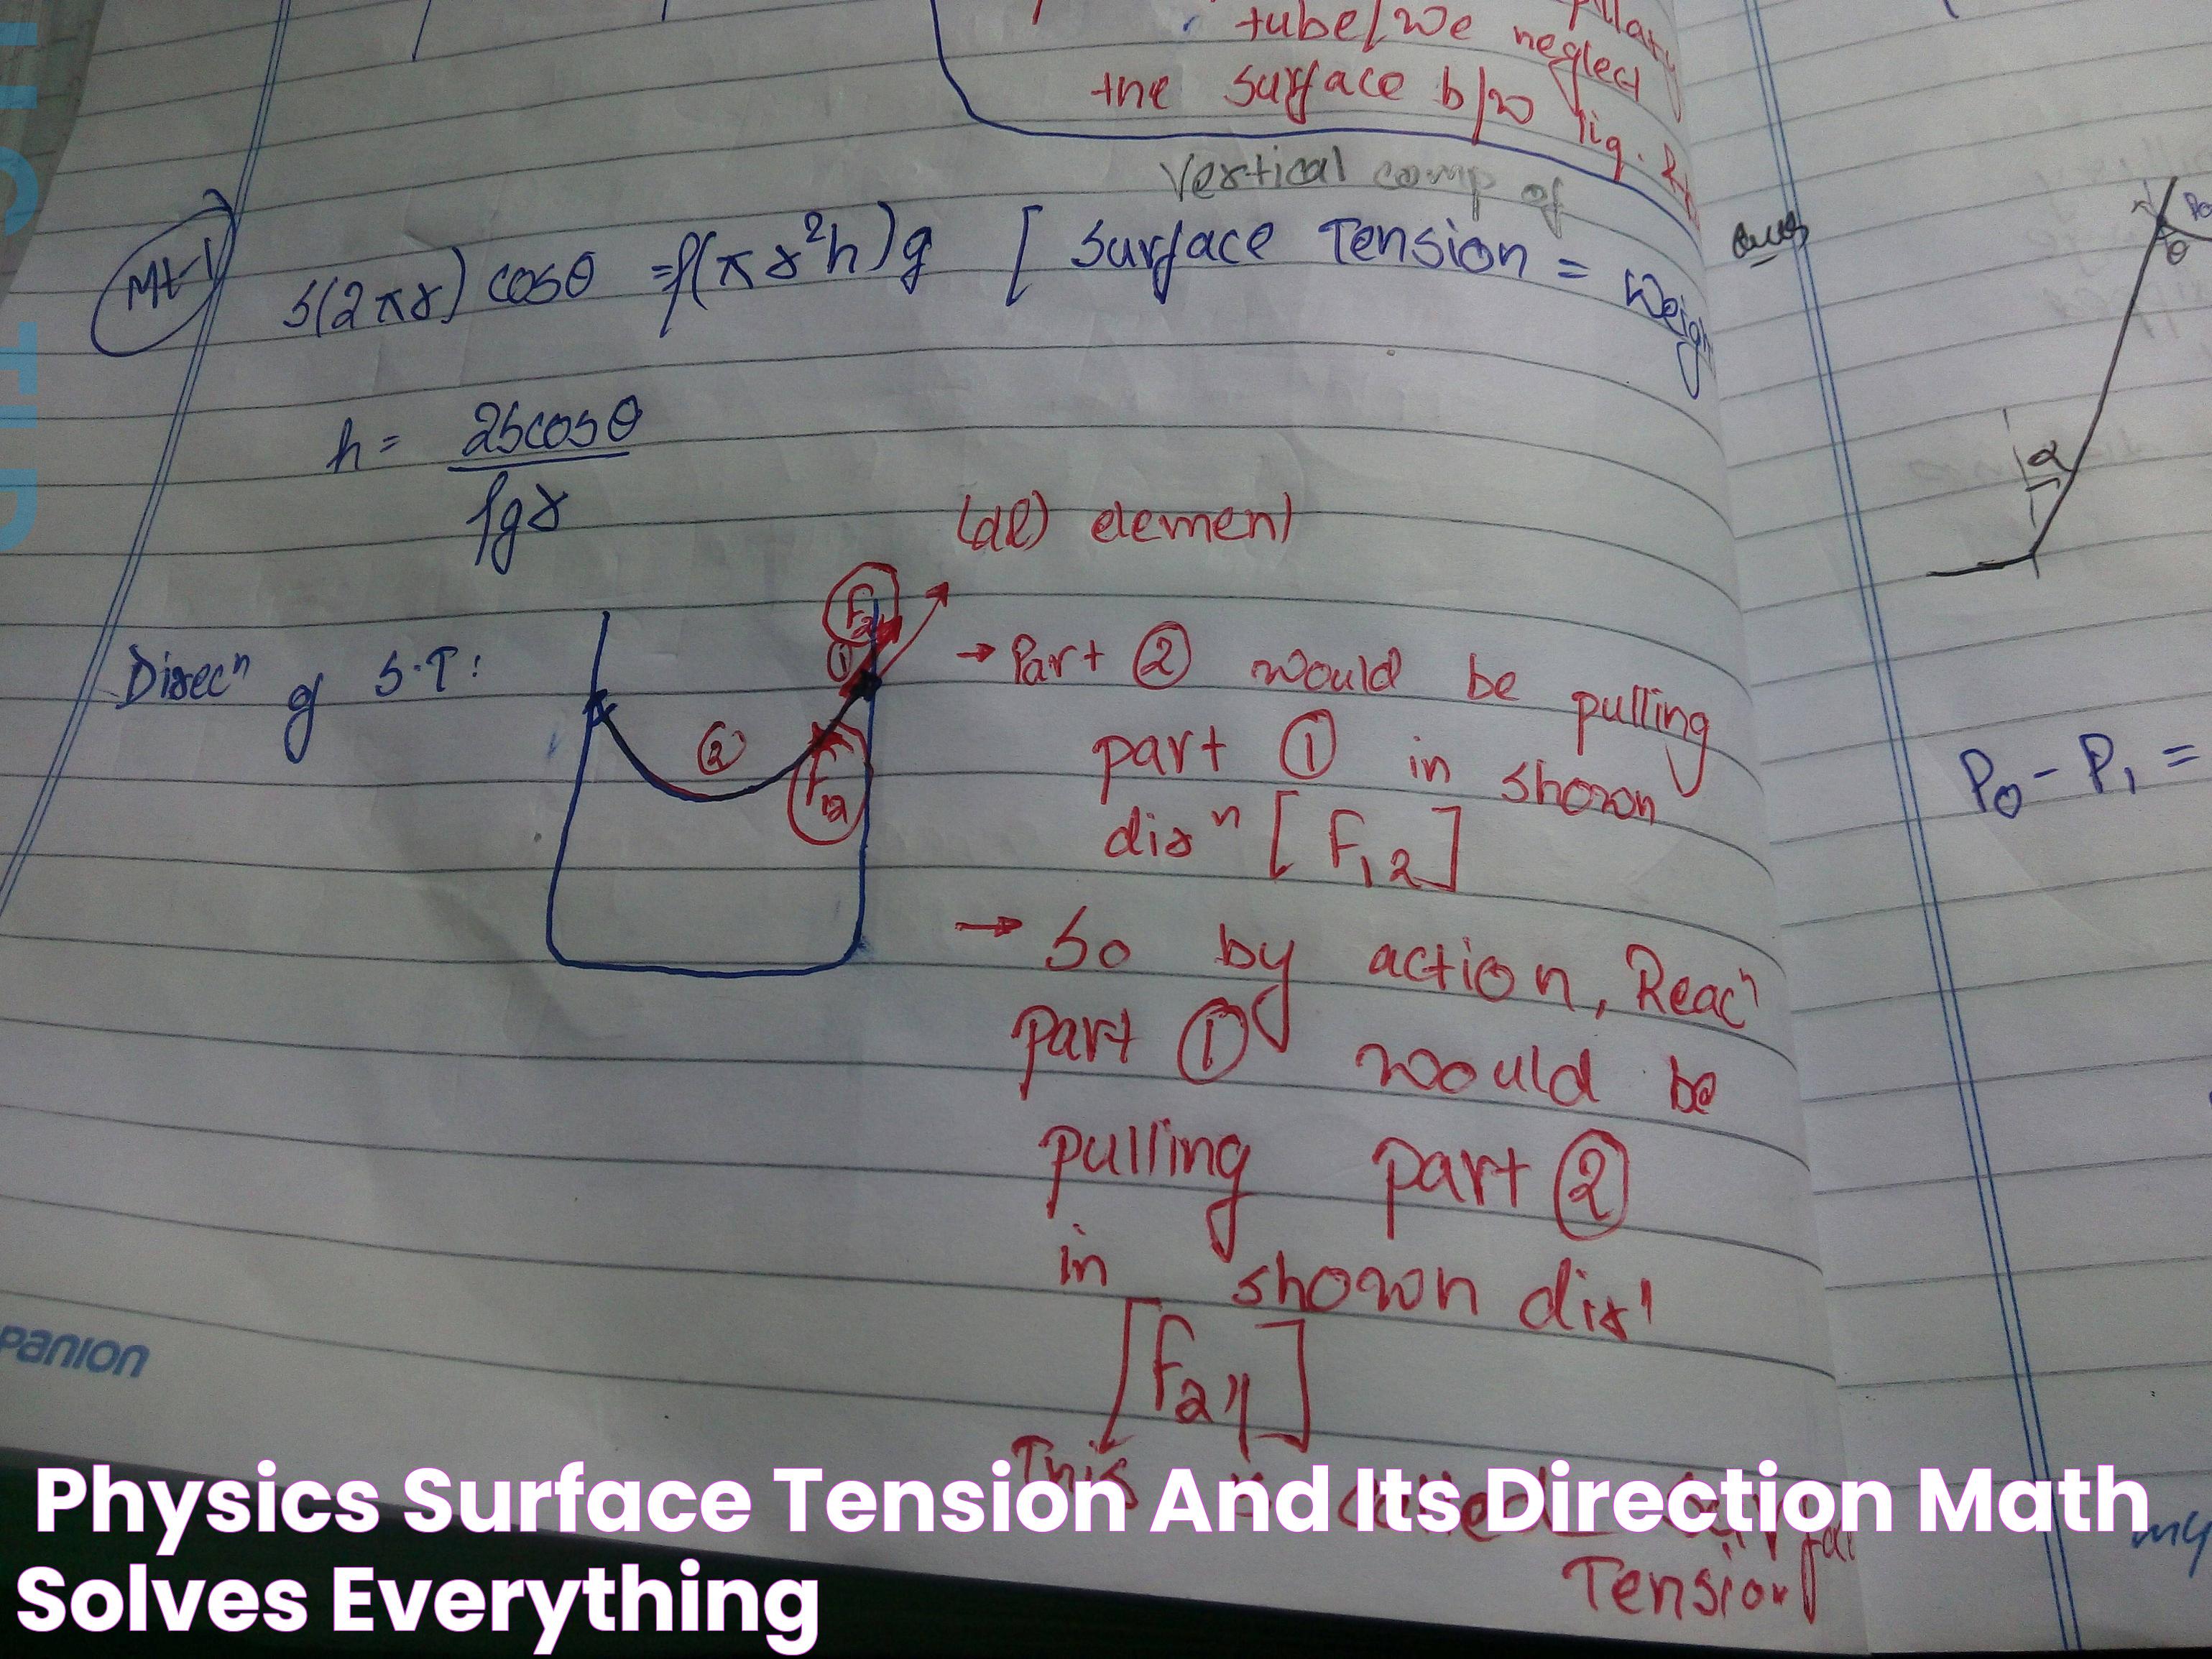 tube/we neglect
the surface b/w liq.
Vertical comp of
Mt-1
S(2πr) cosθ = ρ(πr²h)g [ Surface Tension = Weigh
h = 2Scosθ / ρgr
(dl) element
Direcⁿ of S.T:
F21
1
2
F12
→ Part ② would be pulling
part ① in shown
dirⁿ [F12]
→ So by action, Reacⁿ
part ① would be
pulling part ②
in shown dirⁿ
[F21]
This is called Surface
Tension
θ
α
P₀ - P₁ =
mg
panion
Physics Surface Tension And Its Direction Math
Solves Everything